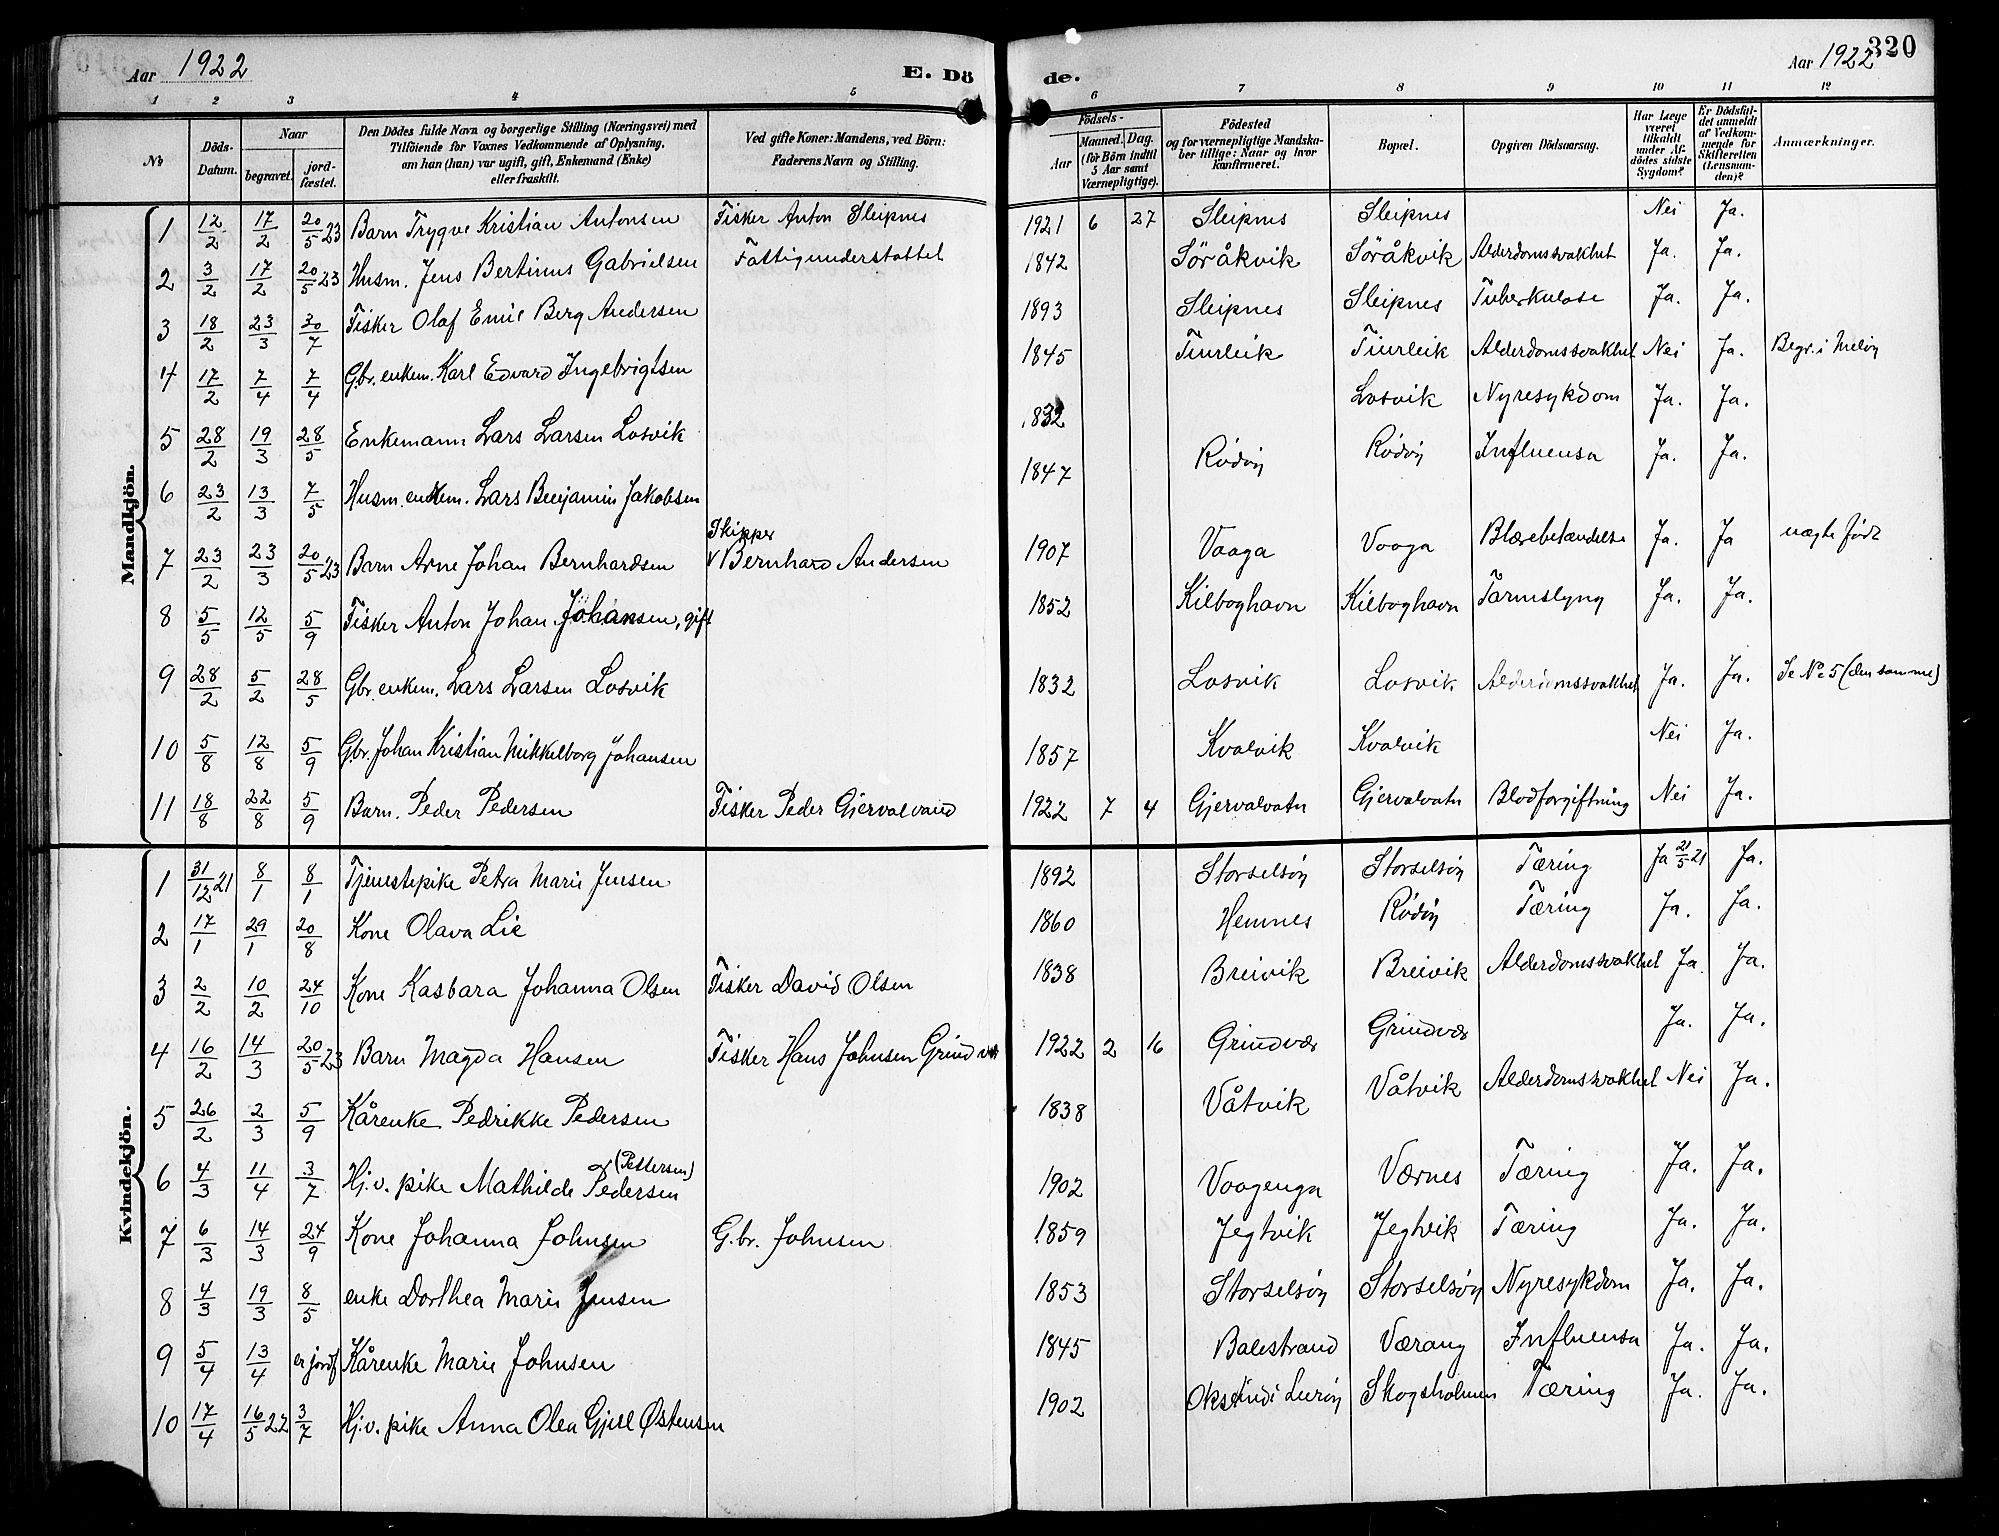 Aar 1922 E. Dö
de. Aar 1922 320
1 2 3 4 5 6 7 8 9 10 11 12
No Döds-Datum. Naar begravet. jord-fæstet. Den Dödes fulde Navn og borgerlige Stilling (Næringsvei) med Tilföiende for Voxnes Vedkommende af Oplysning, om han (hun) var ugift, gift, Enkemand (Enke) eller fraskilt. Ved gifte Koner: Mandens, ved Börn: Faderens Navn og Stilling.
Födsels- Aar Maaned. Dag. (for Börn indtil 5 Aar samt Værnepligtige). Födested og for værnepligtige Mandska-ber tillige: Naar og hvor konfirmeret. Bopæl. Opgiven Dödsaarsag. Har Læge været tilkaldt under Af-dödes sidste Sygdom? Er Dödsfal-det anmeldt af Vedkom-mende for Skifteretten (Lensman-den)? Anmærkninger.
Mandkjön.
1 12/2 17/2 20/5 23 Barn Trygve Kristian Antonsen Fisker Anton Sleipnes 1921 6 27 Sleipnes Sleipnes Nei Ja.
2 3/2 17/2 20/5 23 Husm. Jens Bertinus Gabrielsen Fattigunderstøttet 1842 Söråkvik Söråkvik Alderdomssvakhet Ja. Ja.
3 18/2 23/3 30/7 Fisker Olaf Emil Berg Andersen 1893 Sleipnes Sleipnes Tuberkulose Ja. Ja.
4 17/2 7/4 7/4 Gbr. enkem. Karl Edvard Ingebrigtsen 1845 Tiurleik Tiurleik Alderdomssvakhet Nei Ja. Begr. i Meløy
5 28/2 19/3 28/5 Enkemann Lars Larsen Losvik 1832 Losvik Nyresykdom Ja. Ja.
6 23/2 13/3 7/5 Husm. enkem. Lars Benjamin Jakobsen 1847 Rødøy Rødøy Influensa Ja. Ja.
7 23/2 23/3 20/5 23 Barn Arne Johan Bernhardsen Skipper Bernhard Andersen 1907 Vaaga Vaaga Blærebetændelse Ja. Ja uægte født
8 5/5 12/5 5/9 Fisker Anton Johan Johansen, gift 1852 Kilboghavn Kilboghavn Tarmslyng Ja. Ja.
9 28/2 5/2 28/5 Gbr. enkem. Lars Larsen Losvik 1832 Losvik Losvik Alderdomssvakhet Ja. Ja. Se No 5 (den samme)
10 5/8 12/8 5/9 Gbr. Johan Kristian Mikkelborg Johansen 1857 Kvalvik Kvalvik Nei Ja.
11 18/8 22/8 5/9 Barn. Peder Pedersen Fisker Peder Gjervalvand 1922 7 4 Gjervalvatn Gjervalvatn Blodforgiftning Nei Ja.
Kvindekjön.
1 31/12 21 8/1 8/1 Tjenestepike Petra Marie Jensen 1892 Storselsøy Storselsøy Tæring Ja 21/5 21 Ja.
2 17/1 29/1 20/8 Kone Olava Lie 1860 Hemnes Rødøy Tæring Ja. Ja.
3 2/2 10/2 24/10 Kone Kasbara Johanna Olsen Fisker David Olsen 1838 Breivik Breivik Alderdomssvakhet Ja. Ja.
4 16/2 14/3 20/5 23 Barn Magda Hansen Fisker Hans Johnsen Grindvær 1922 2 16 Grindvær Grindvær Ja. Ja.
5 26/2 2/3 5/9 Kårenke Pedrikke Pedersen 1838 Våtvik Våtvik Alderdomssvakhet Nei Ja.
6 4/3 11/4 3/7 Hj.v. pike Mathilde Pedersen (Pettersen) 1902 Vaagenga Værnes Tæring Ja. Ja.
7 6/3 14/3 24/9 Kone Johanna Johnsen G.br. Johnsen 1859 Jegtvik Jegtvik Tæring Ja. Ja.
8 4/3 19/3 8/5 enke Dorthea Marie Jensen 1853 Storselsøy Storselsøy Nyresykdom Ja. Ja.
9 5/4 13/4 er jordf Kårenke Marie Johnsen 1845 Balestrand Værang Influensa Ja. Ja.
10 17/4 16/5 22 3/7 Hj.v. pike Anna Olea Gjesl Østensen 1902 i Lurøy Skogsholmen Tæring Ja. Ja.